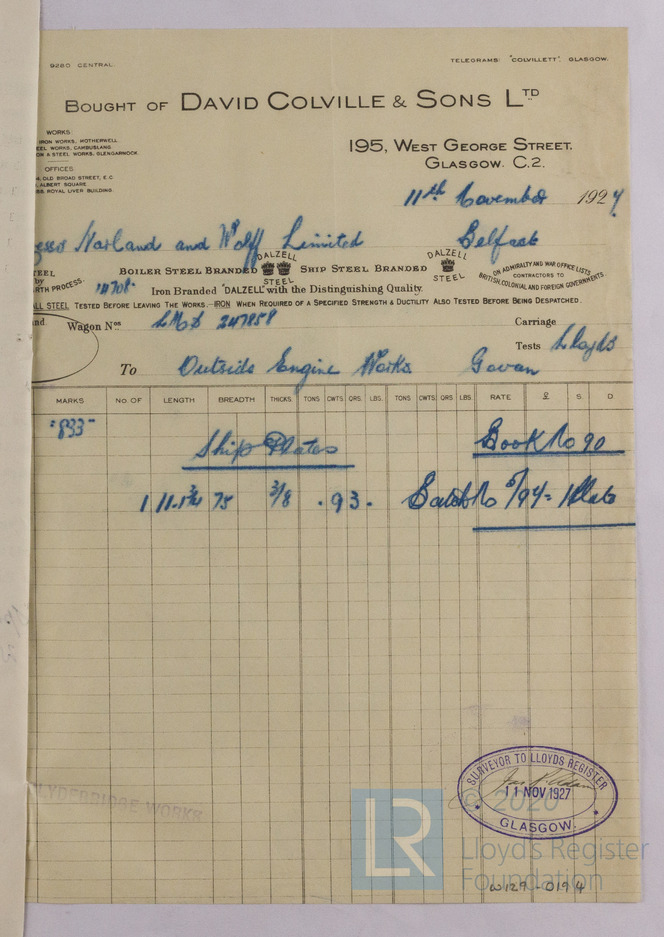 9280 CENTRAL.
TELEGRAMS: "COLVILLETT", GLASGOW.
BOUGHT OF DAVID COLVILLE & SONS LTD
WORKS
IRON WORKS, MOTHERWELL
EEL WORKS, CAMBUSLANG
ON & STEEL WORKS, GLENGARNOCK
OFFICES
4, OLD BROAD STREET, E.C.
, ALBERT SQUARE
ROYAL LIVER BUILDING
195, WEST GEORGE STREET.
GLASGOW. C.2.
11th November 1927
Harland and Wolff Limited Belfast
TEEL
by
ARTH PROCESS.
BOILER STEEL BRANDED DALZELL STEEL SHIP STEEL BRANDED DALZELL STEEL
ON ADMIRALTY AND WAR OFFICE LISTS
CONTRACTORS TO
BRITISH, COLONIAL AND FOREIGN GOVERNMENTS.
14708. Iron Branded "DALZELL" with the Distinguishing Quality.
ALL STEEL TESTED BEFORE LEAVING THE WORKS.—IRON WHEN REQUIRED OF A SPECIFIED STRENGTH & DUCTILITY ALSO TESTED BEFORE BEING DESPATCHED.
and Wagon Nos LMS 247858 Carriage
Tests Lloyds
To Outside Engine Works Govan
MARKS NO OF LENGTH BREADTH THICKS. TONS CWTS. QRS. LBS. TONS CWTS. QRS. LBS. RATE £ S. D.
"833"
Ship Plates Book No 90
1 11.1¾ 75 3/8 . 9 3 . Batch No 5/94 = 1 Plate
SURVEYOR TO LLOYDS REGISTER
11 NOV 1927
GLASGOW.
LYDEBRIDGE WORKS
LR
© 2020
Lloyd's Register
Foundation
W129-0194